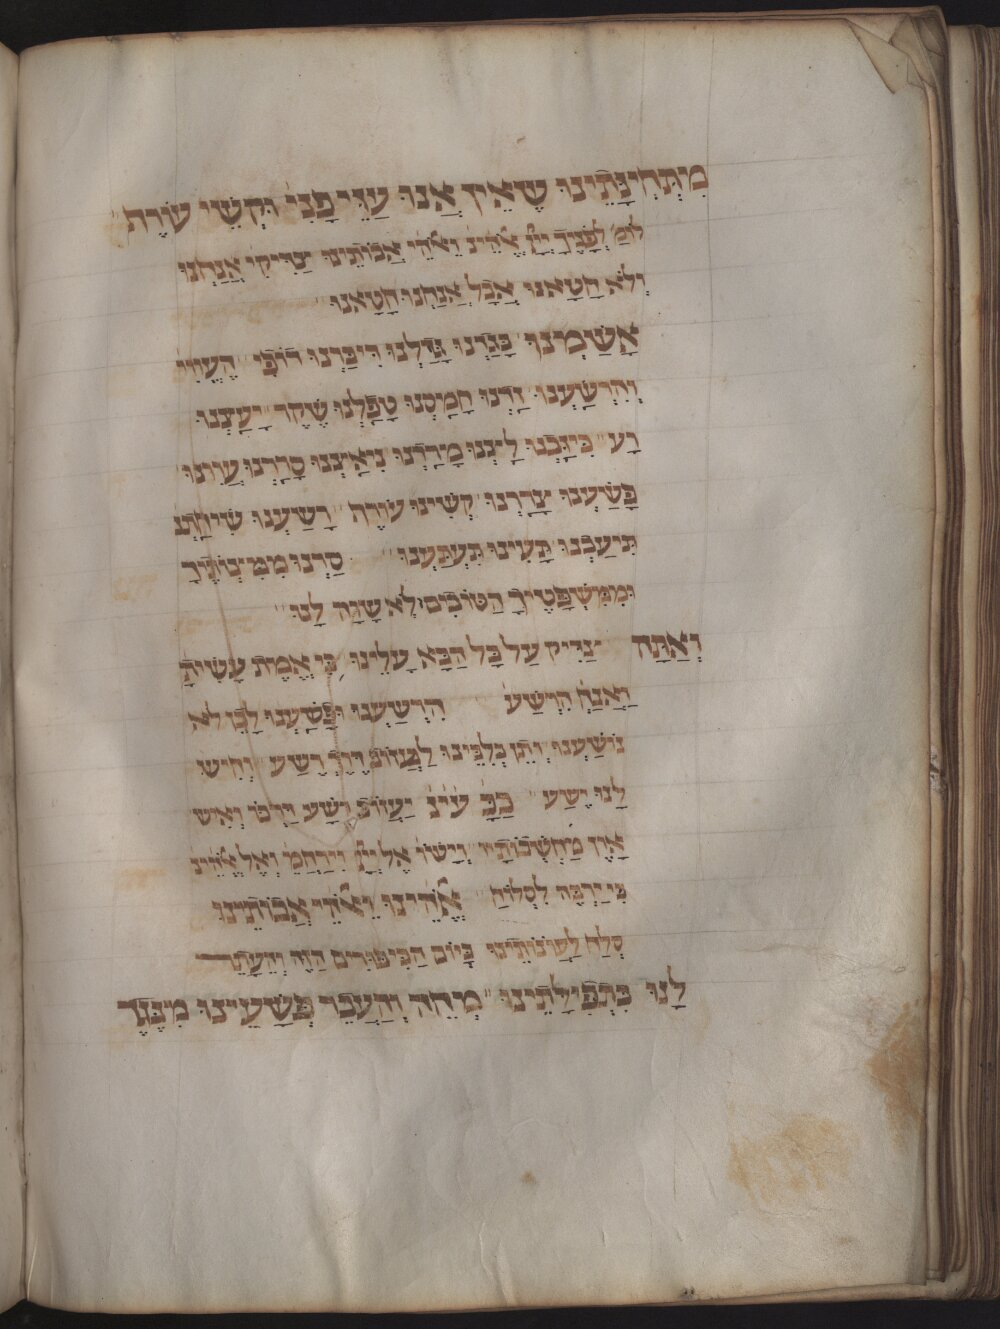 מִתְּחִינָתֵינוּ שֶׁאֵין אֲנוּ עַזֵּי פָנִי׳ וּקְשֵׁי עוֹרֶת
לוֹמַ׳ לְפָנֶיךָ אֱלֹהֵינוּ וֵאלֹהֵי אֲבוֹתֵינוּ צַדִּיקִי׳ אֲנַחְנוּ
וְלֹא חָטָאנוּ אֲבָל אֲנַחְנוּ חָטָאנוּ
אָשַׁמְנוּ בָּגַדְנוּ גָּזַלְנוּ דִּיבַּרְנוּ דוֹפִי הֶעֱוִינוּ
וְהִרְשַׁעְנוּ זַדְנוּ חָמַסְנוּ טָפַלְנוּ שֶׁקֶר יָעַצְנוּ
רָע כִּיזַּבְנוּ לַצְנוּ מָרַדְנוּ נִיאַצְנוּ סָרַרְנוּ עָוִינוּ
פָּשַׁעְנוּ צָרַרְנוּ קִשִּׁינוּ עוֹרֶף רָשַׁעְנוּ שִׁיחַתְנוּ
תִּיעַבְנוּ תָּעִינוּ תִּעְתַּעְנוּ סַרְנוּ מִמִּצְוֹתֶיךָ
וּמִמִּשְׁפָּטֶיךָ הַטּוֹבִים וְלֹא שָׁוָה לָנוּ
וְאַתָּה צַדִּיק עַל כָּל הַבָּא עָלֵינוּ כִּי אֱמֶת עָשִׂיתָ
וַאֲנַחְ׳ הִרְשַׁעְ׳ הִרְשַׁעְנוּ וּפָשַׁעְנוּ לָכֵן לֹא
נוֹשַׁעְנוּ וְתֵן בְּלִבֵּינוּ לַעֲזוֹב דֶּרֶךְ רֶשַׁע וְחִישׁ
לָנוּ יֶשַׁע יַעֲזוֹב רָשָׁע דַּרְכּוֹ וְאִישׁ
אָוֶן מַחְשְׁבוֹתָיו וְיָשׁוֹ׳ אֶל וִירַחֲמֵ׳ וְאֶל אֱלֹהֵינוּ
כִּי יַרְבֶּה לִסְלוֹחַ אֱלֹהֵינוּ וֵאלֹהֵי אֲבוֹתֵינוּ
סְלַח לַעֲוֹנוֹתֵינוּ בְּיוֹם הַכִּיפּוּרִים הַזֶּה וְהֵעָתֵר
לָנוּ בִּתְפִילָתֵינוּ מְחֵה וְהַעֲבֵר פְּשָׁעֵינוּ מִנֶּגֶד